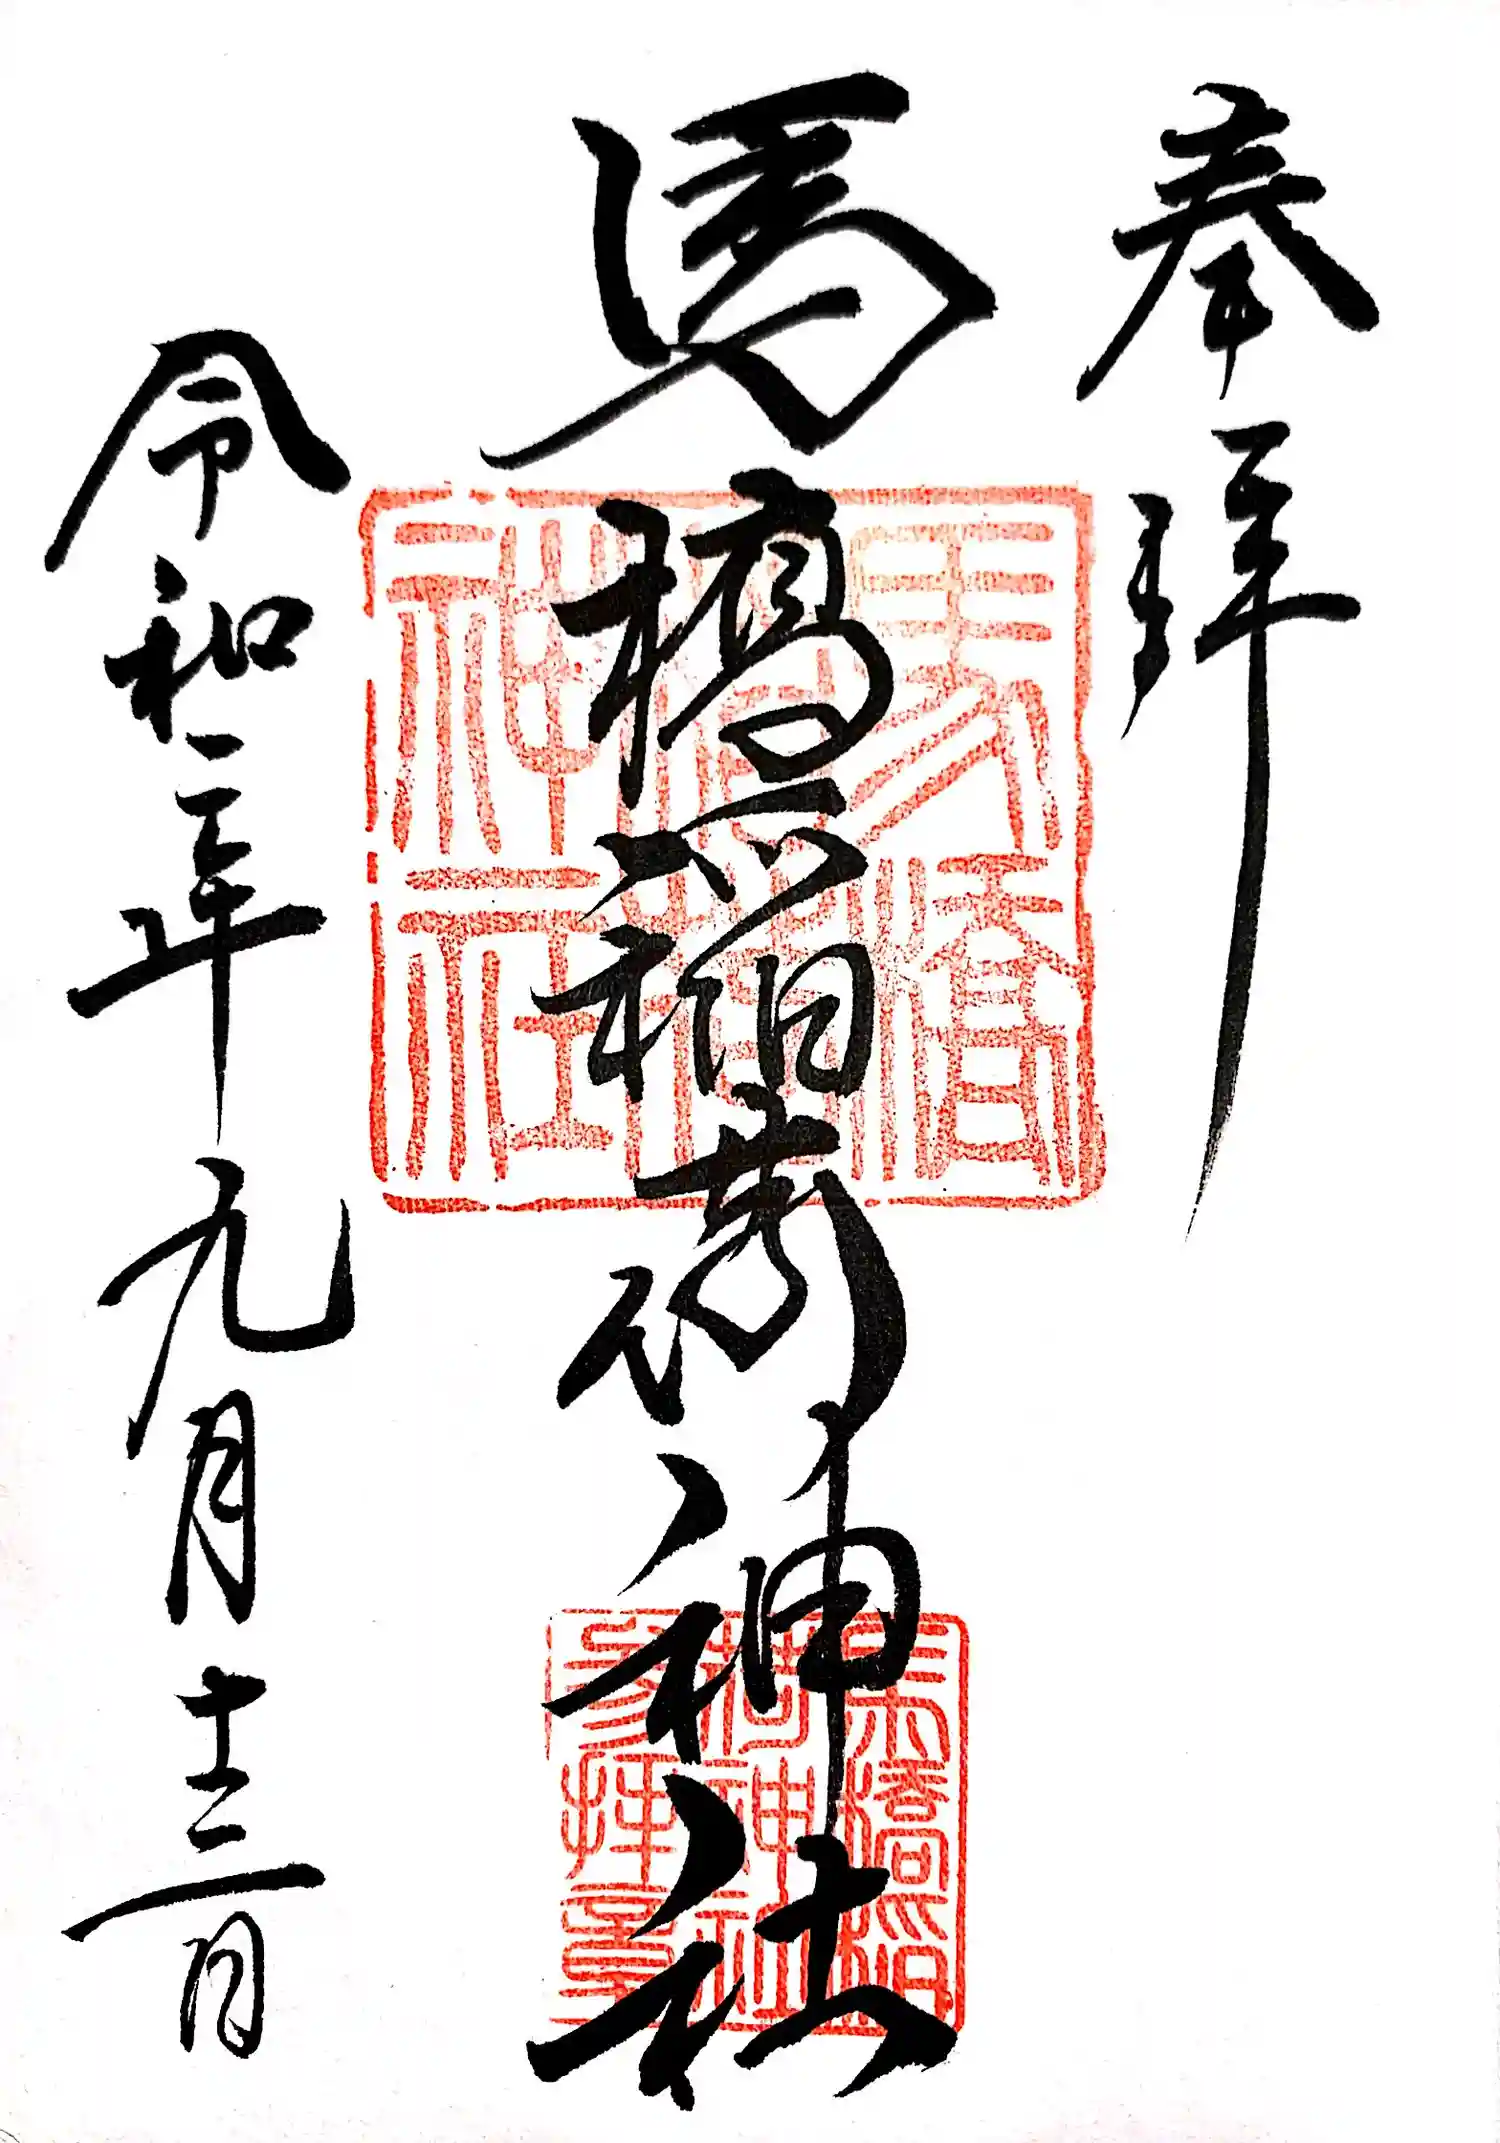 奉拝
馬橋稲荷神社
令和二年九月十三日
馬橋稲荷神社
馬橋稲荷神社参拝章